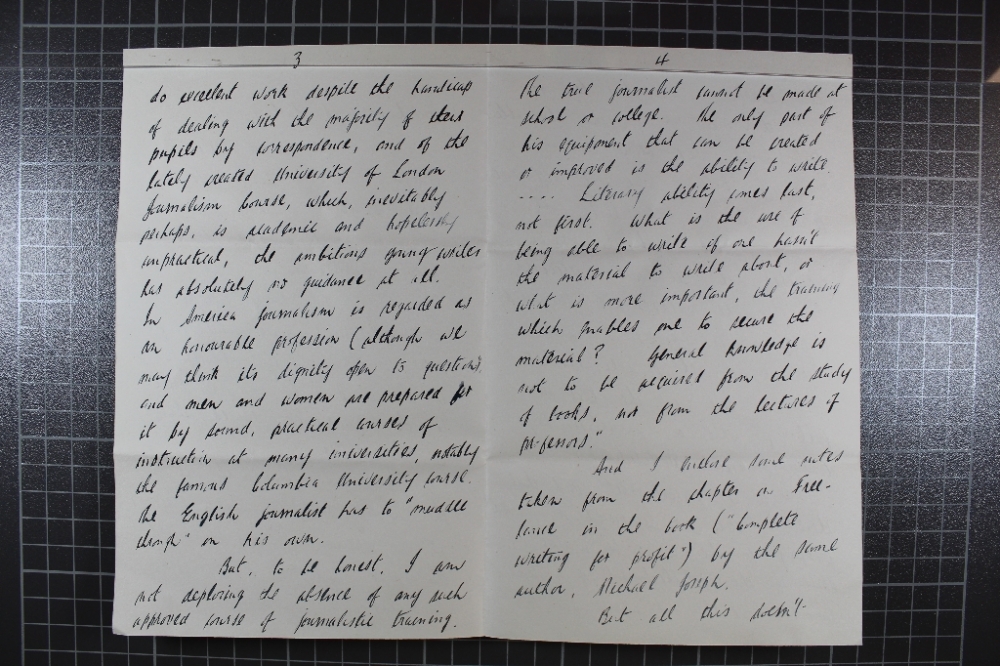 3
do excellent work despite the handicap
of dealing with the majority of their
pupils by correspondence, and of the
lately created University of London
Journalism Course, which, inevitably
perhaps, is academic and hopelessly
unpractical, the ambitious young writer
has absolutely no guidance at all.
In America journalism is regarded as
an honourable profession (although we
may think its dignity open to question)
and men and women are prepared for
it by sound, practical courses of
instruction at many universities, notably
the famous Columbia University course.
The English journalist has to "muddle
through" on his own.
But, to be honest, I am
not deploring the absence of any such
approved course of journalistic training.
4
The true journalist cannot be made at
school or college. The only part of
his equipment that can be created
or improved is the ability to write.
.... Literary ability comes last,
not first. What is the use of
being able to write if one hasn't
the material to write about, or
what is more important, the training
which enables one to secure the
material? General knowledge is
not to be acquired from the study
of books, nor from the lectures of
professors."
And I enclose some notes
taken from the chapter on Free-
lance in the book ("Complete
writing for profit") by the same
author, Michael Joseph.
But all this doesn't